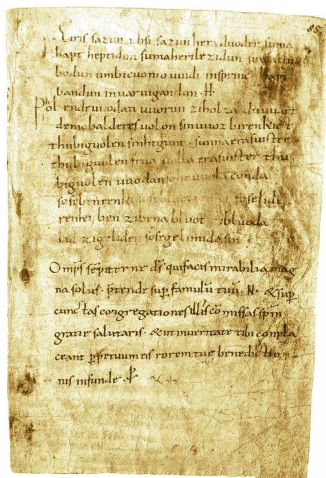 85
Eiris sazun idisi sazun hera duoder suma
hapt heptidun sumaherilezidun sumaclu
bodun umbicuonio uuidi insprinc hapt
bandun inuar uigandun · H ·
Phol ende uuodan uuorun ziholza du uuart
demobalderes uolon sinuuoz birenkict
thubiguolen sinhtgunt · sunna erasuister
thubiguolen friia uolla erasuister thu
biguolen uuodan sohe uuola conda
sosebenrenki sose bluotrenki soselidi
renki ben zibena bluot zibluoda
lid zigeliden sosegelimida sin
Omps sempiterne ds qui facis mirabilia mag
na solus ptende sup famulu tuu · N · & sup
cunctas congregationes illis comissas spm
gratie salutaris · & ut in ueritate tibi compla
ceant ppetuum eis rorem tue benedictio
nis infunde · P